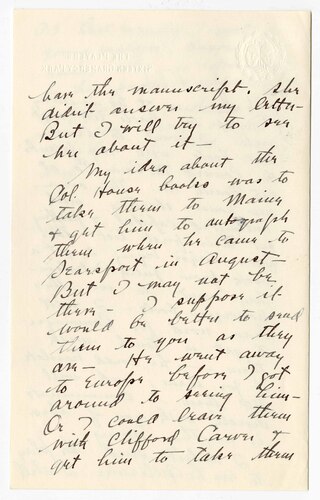 have the manuscript. She
didn't answer my letter –
But I will try to see
her about it –
My idea about the
Col. House books was to
take them to Maine
& get him to autograph
them when he came to
Searsport in August –
But I may not be
there – I suppose it
would be better to send
them to you as they
are – He went away
to Europe before I got
around to seeing him –
Or I could leave them
with Clifford Carver &
get him to take them